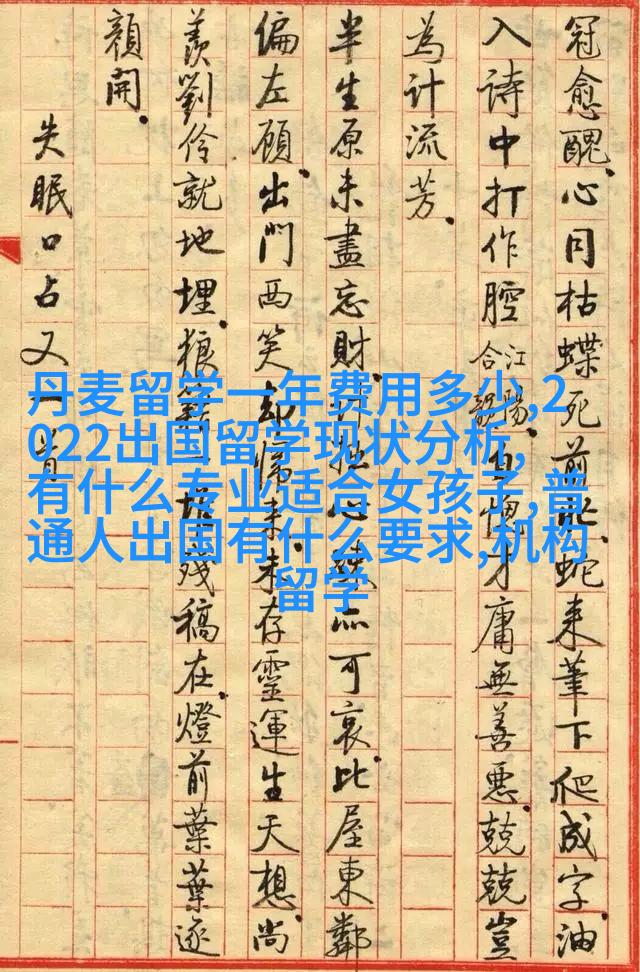 冠愈醜。心同枯蝶死前。蛇来筆下爬成字。油
入詩中打作腔江陽合韻。自愧才庸無善惡。兢兢豈
為計流芳。
半生原未盡忘財。計拙心疏亦可哀。比屋東鄰
偏左顧。出門西笑却歸来。未存靈運生天想。尚
羨劉伶就地埋。狼籍一堆殘稿在。燈前葉葉逐
顏開。
失眠口占又一首
丹麦留学一年费用多少,2
022出国留学现状分析,
有什么专业适合女孩子,普
通人出国有什么要求,机构
留学